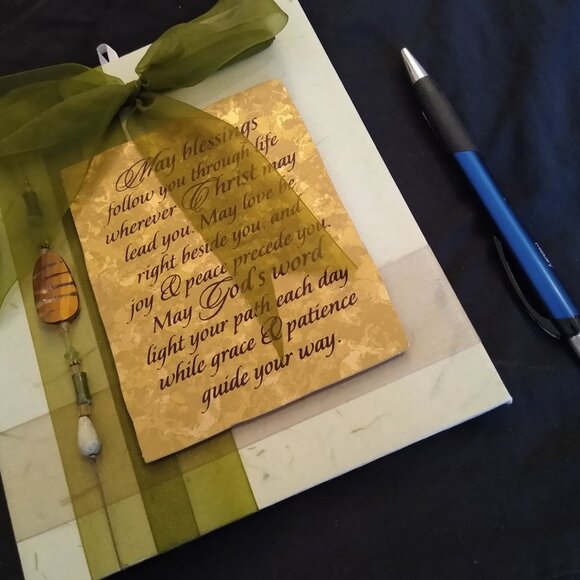 May blessings
follow you through life
wherever Christ may
lead you. May love be
right beside you, and
joy & peace precede you.
May God's word
light your path each day
while grace & patience
guide your way.